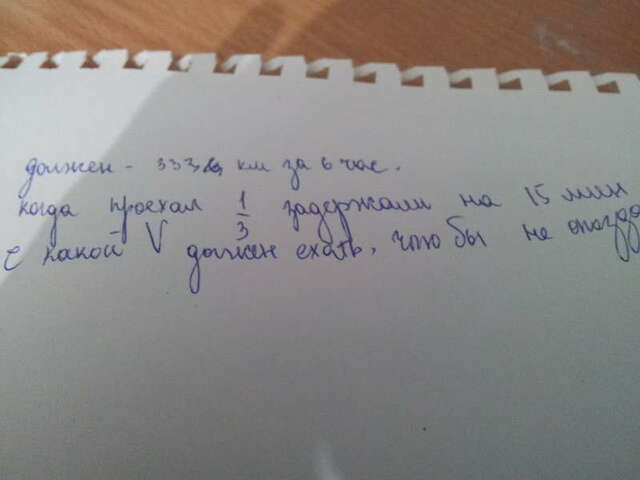 должен - 333 км за 6 час.
когда проехал 1/3 задержали на 15 мин
с какой V должен ехать, что бы не опозда